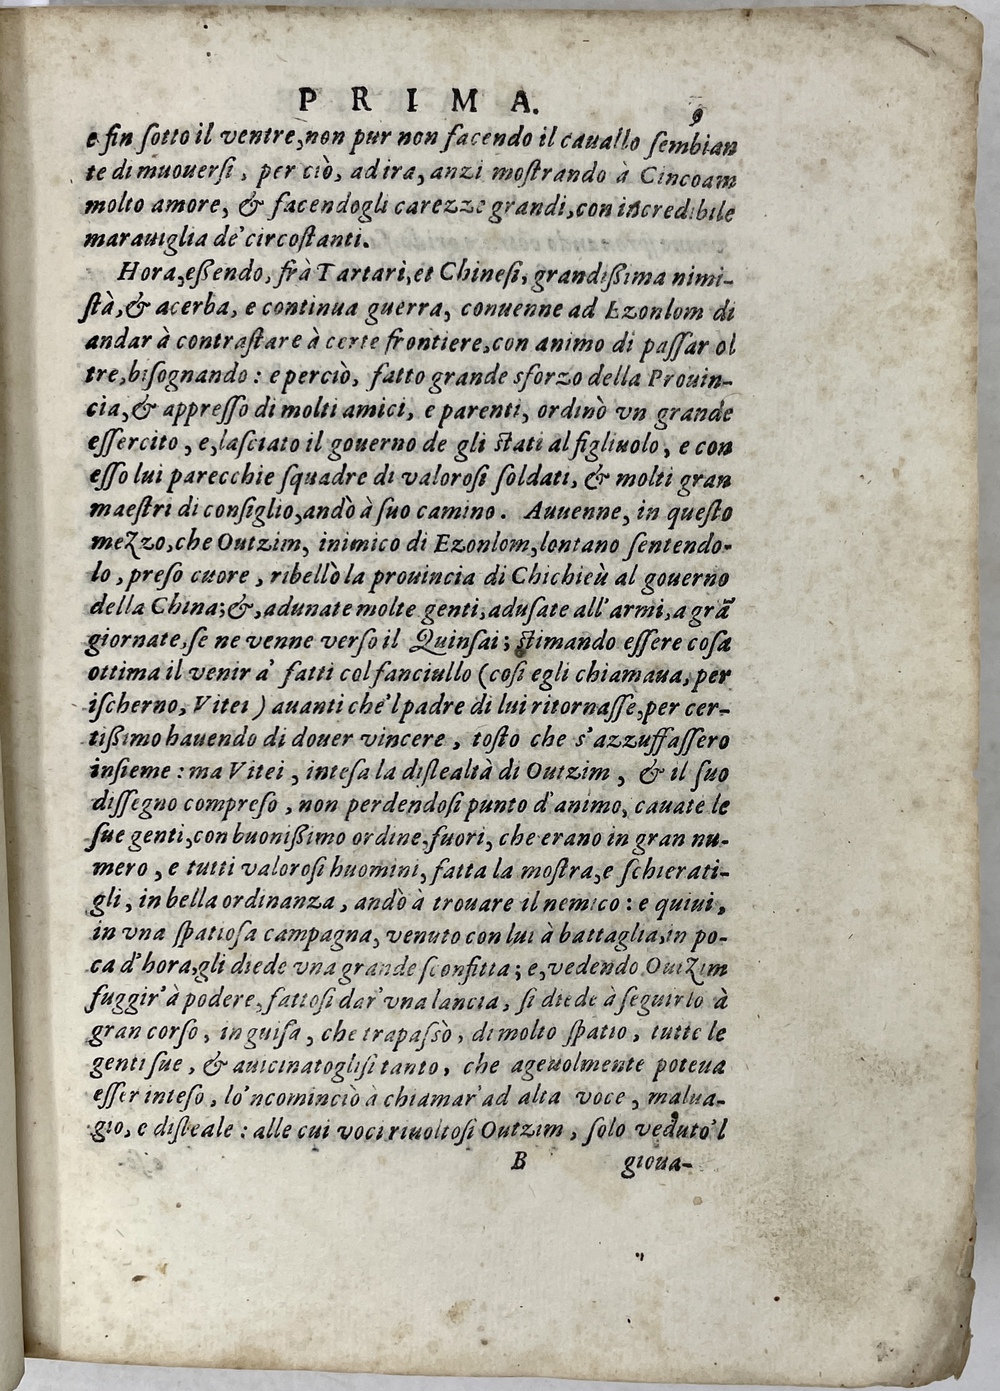 PRIMA. 9
e fin ſotto il ventre, non pur non facendo il cauallo ſembian
te di muouerſi, per ciò, ad ira, anzi moſtrando à Cincoam
molto amore, & facendogli carezze grandi, con incredibile
marauiglia de' circoſtanti.
Hora, eßendo, frà Tartari, et Chineſi, grandißima nimi-
ſtà, & acerba, e continua guerra, conuenne ad Ezonlom di
andar à contraſtare à certe frontiere, con animo di paſſar ol
tre, biſognando: e perciò, fatto grande sforzo della Prouin-
cia, & appreſſo di molti amici, e parenti, ordinò vn grande
eſſercito, e, laſciato il gouerno de gli ſtati al figliuolo, e con
eſſo lui parecchie ſquadre di valoroſi ſoldati, & molti gran
maeſtri di conſiglio, andò à ſuo camino. Auuenne, in queſto
mezzo, che Outzim, inimico di Ezonlom, lontano ſentendo-
lo, preſo cuore, ribellò la prouincia di Chichieù al gouerno
della China; &, adunate molte genti, aduſate all' armi, a grã
giornate, ſe ne venne verſo il Quinſai; ſtimando eſſere coſa
ottima il venir a' fatti col fanciullo (coſi egli chiamaua, per
iſcherno, Vitei) auanti che'l padre di lui ritornaſſe, per cer-
tißimo hauendo di douer vincere, toſto che s'azzuffaſſero
inſieme: ma Vitei, inteſa la diſlealtà di Outzim, & il ſuo
diſſegno compreſo, non perdendoſi punto d'animo, cauate le
ſue genti, con buonißimo ordine, fuori, che erano in gran nu-
mero, e tutti valoroſi huomini, fatta la moſtra, e ſchierati-
gli, in bella ordinanza, andò à trouare il nemico: e quiui,
in vna ſpatioſa campagna, venuto con lui à battaglia, in po-
ca d'hora, gli diede vna grande ſconfitta; e, vedendo Outzim
fuggir' à podere, fattoſi dar' vna lancia, ſi diede à ſeguirlo à
gran corſo, in guiſa, che trapaſsò, di molto ſpatio, tutte le
genti ſue, & auicinatogliſi tanto, che ageuolmente poteua
eſſer inteſo, lo'ncominciò à chiamar' ad alta voce, malua-
gio, e diſleale: alle cui voci riuoltoſi Outzim, ſolo veduto'l
B gioua-